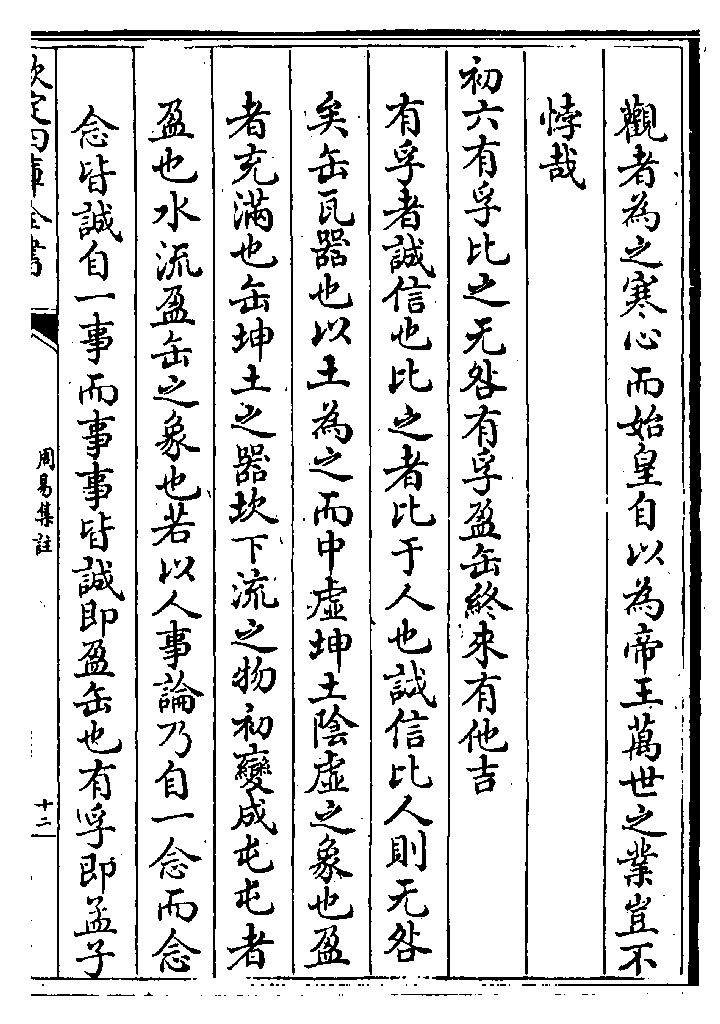 觀者為之寒心而始皇自以為帝王萬世之業豈不
悖哉
初六有孚比之无咎有孚盈缶終來有他吉
有孚者誠信也比之者比于人也誠信比人則无咎
矣缶瓦器也以土為之而中虛坤土陰虛之象也盈
者充滿也缶坤土之器坎下流之物初變成屯屯者
盈也水流盈缶之象也若以人事論乃自一念而念
念皆誠自一事而事事皆誠即盈缶也有孚即孟子
欽定四庫全書
周易集註
十二